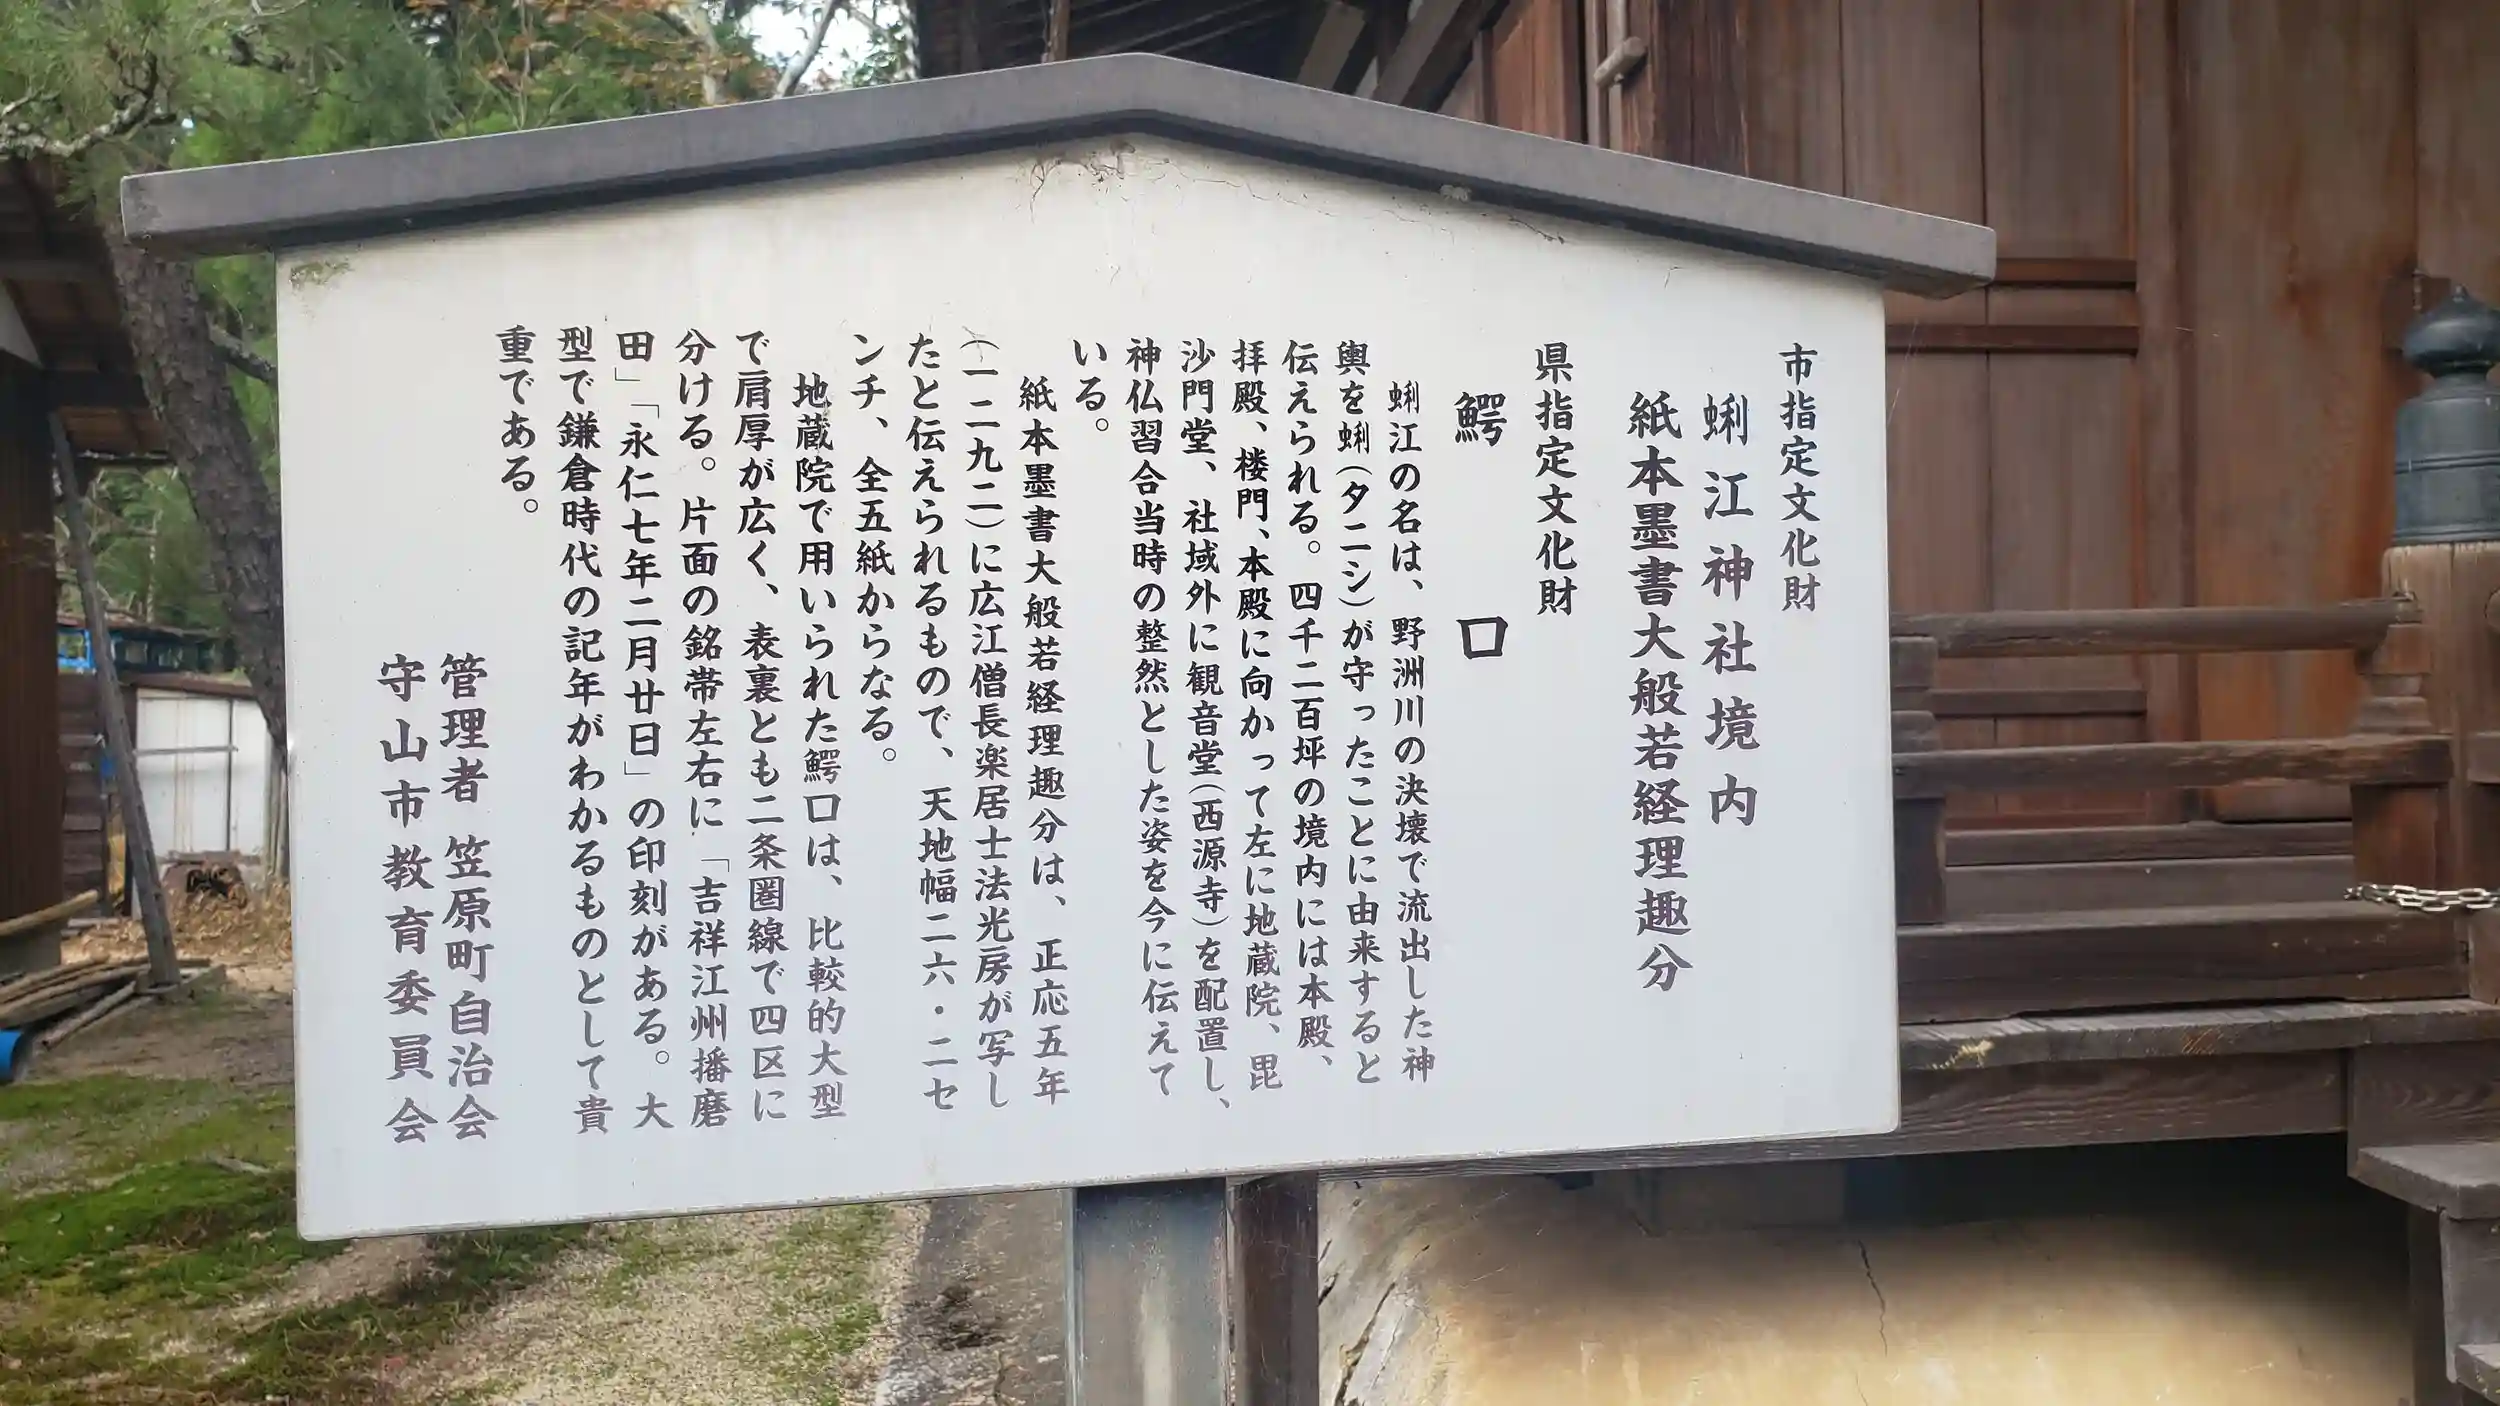 市指定文化財
蜊江神社境内
紙本墨書大般若経理趣分
県指定文化財
鰐口
蜊江の名は、野洲川の決壊で流出した神
輿を蜊(タニシ)が守ったことに由来すると
伝えられる。四千二百坪の境内には本殿、
拝殿、楼門、本殿に向かって左に地蔵院、毘
沙門堂、社域外に観音堂(西源寺)を配置し、
神仏習合当時の整然とした姿を今に伝えて
いる。
紙本墨書大般若経理趣分は、正応五年
(一二九二)に広江僧長楽居士法光房が写し
たと伝えられるもので、天地幅二六・二セ
ンチ、全五紙からなる。
地蔵院で用いられた鰐口は、比較的大型
で肩厚が広く、表裏とも二条圏線で四区に
分ける。片面の銘帯左右に「吉祥江州播磨
田」「永仁七年二月廿日」の印刻がある。大
型で鎌倉時代の記年がわかるものとして貴
重である。
管理者 笠原町自治会
守山市教育委員会